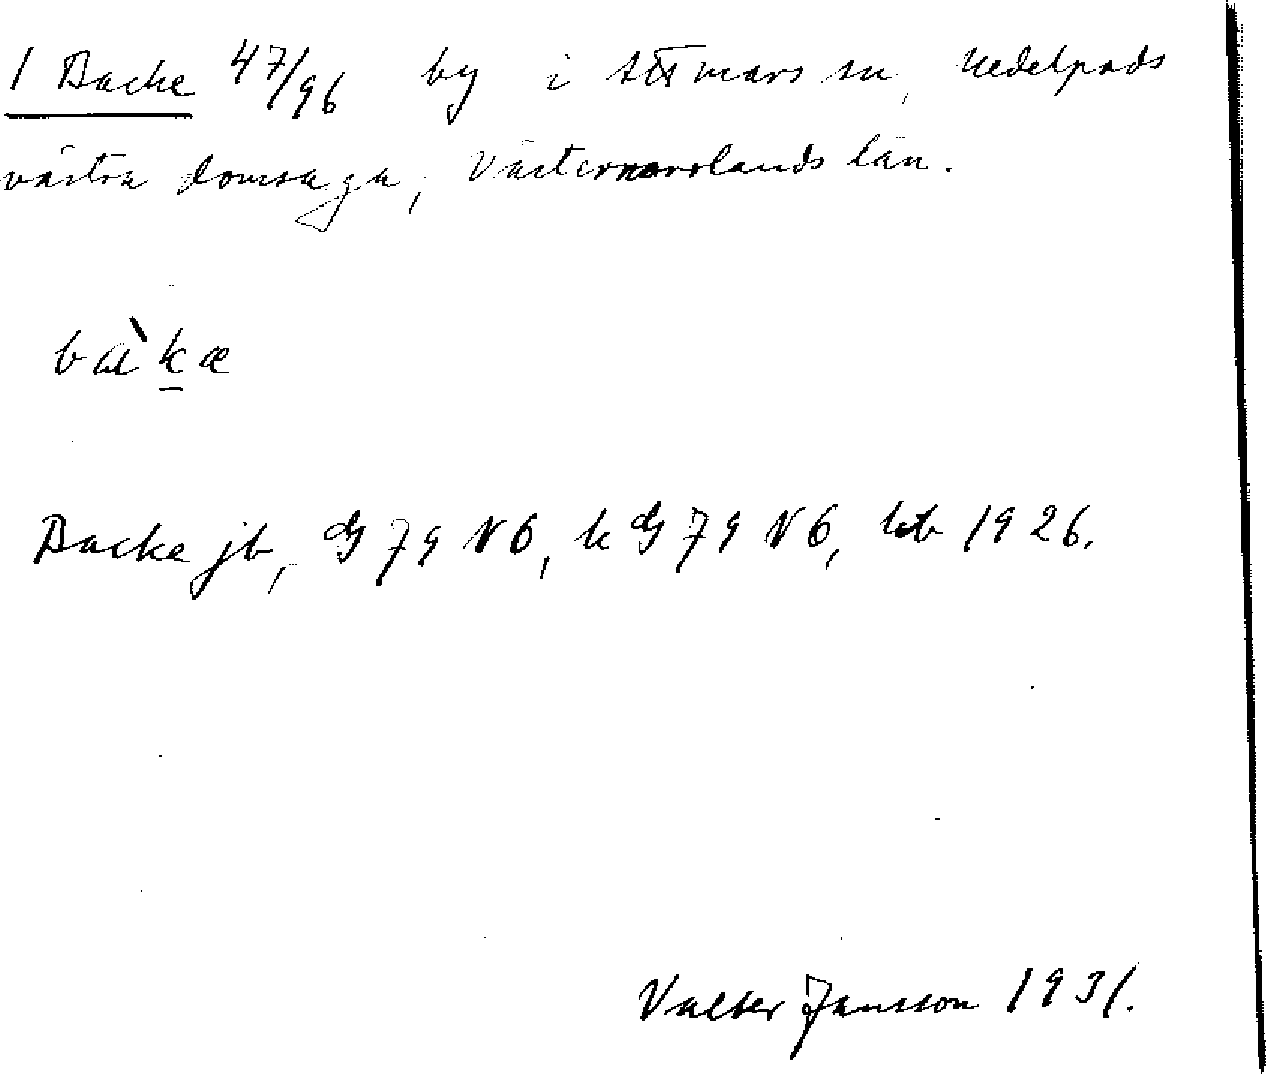 1 Backe 47/96 by i Attmars sn, Medelpads
västra domsaga, Västernorrlands län.
bàkæ
Backe jb, G 79 N 6, k G 79 N 6, ktb 1926.
Valter Jansson 1931.